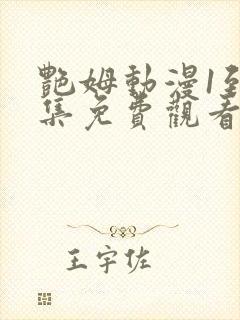 艷姆動漫1至
集免費觀看
王宇佐